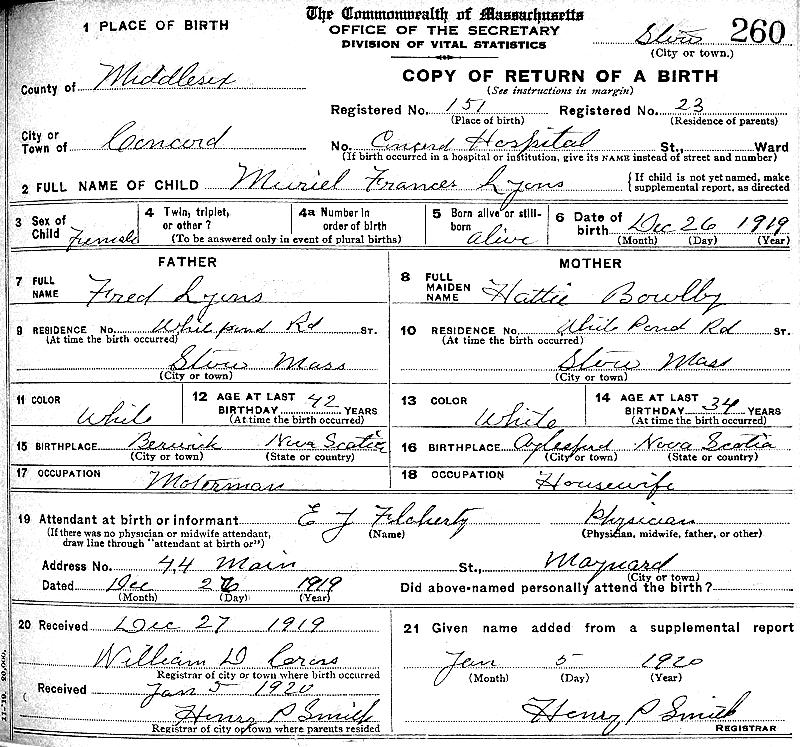 The Commonwealth of Massachusetts
OFFICE OF THE SECRETARY
DIVISION OF VITAL STATISTICS
Stow 260
(City or town.)
1 PLACE OF BIRTH
County of Middlesex
COPY OF RETURN OF A BIRTH
(See instructions in margin)
Registered No. 151 Registered No. 23
(Place of birth) (Residence of parents)
City or Town of Concord
No. Concord Hospital St., Ward
(If birth occurred in a hospital or institution, give its NAME instead of street and number)
2 FULL NAME OF CHILD Muriel Frances Lyons { If child is not yet named, make supplemental report, as directed
3 Sex of Child Female
4 Twin, triplet, or other?
4a Number in order of birth
(To be answered only in event of plural births)
5 Born alive or still-born alive
6 Date of birth Dec 26 1919
(Month) (Day) (Year)
FATHER
7 FULL NAME Fred Lyons
9 RESIDENCE No. White pond Rd ST.
(At time the birth occurred)
Stow Mass
(City or town)
11 COLOR White
12 AGE AT LAST BIRTHDAY 42 YEARS
(At time the birth occurred)
15 BIRTHPLACE Berwick Nova Scotia
(City or town) (State or country)
17 OCCUPATION Motorman
MOTHER
8 FULL MAIDEN NAME Hattie Bowlby
10 RESIDENCE No. White Pond Rd ST.
(At time the birth occurred)
Stow Mass
(City or town)
13 COLOR White
14 AGE AT LAST BIRTHDAY 34 YEARS
(At time the birth occurred)
16 BIRTHPLACE Aylesford Nova Scotia
(City or town) (State or country)
18 OCCUPATION Housewife
19 Attendant at birth or informant E J Flaherty Physician
(If there was no physician or midwife attendant, draw line through "attendant at birth or")
(Name) (Physician, midwife, father, or other)
Address No. 44 Main St., Maynard
(City or town)
Dated Dec 26 1919
(Month) (Day) (Year)
Did above-named personally attend the birth?
20 Received Dec 27 1919
William D
Registrar of city or town where birth occurred
Received Jan 5 1920
Henry P Smith
Registrar of city or town where parents resided
21 Given name added from a supplemental report
Jan 5 1920
(Month) (Day) (Year)
Henry P Smith
REGISTRAR